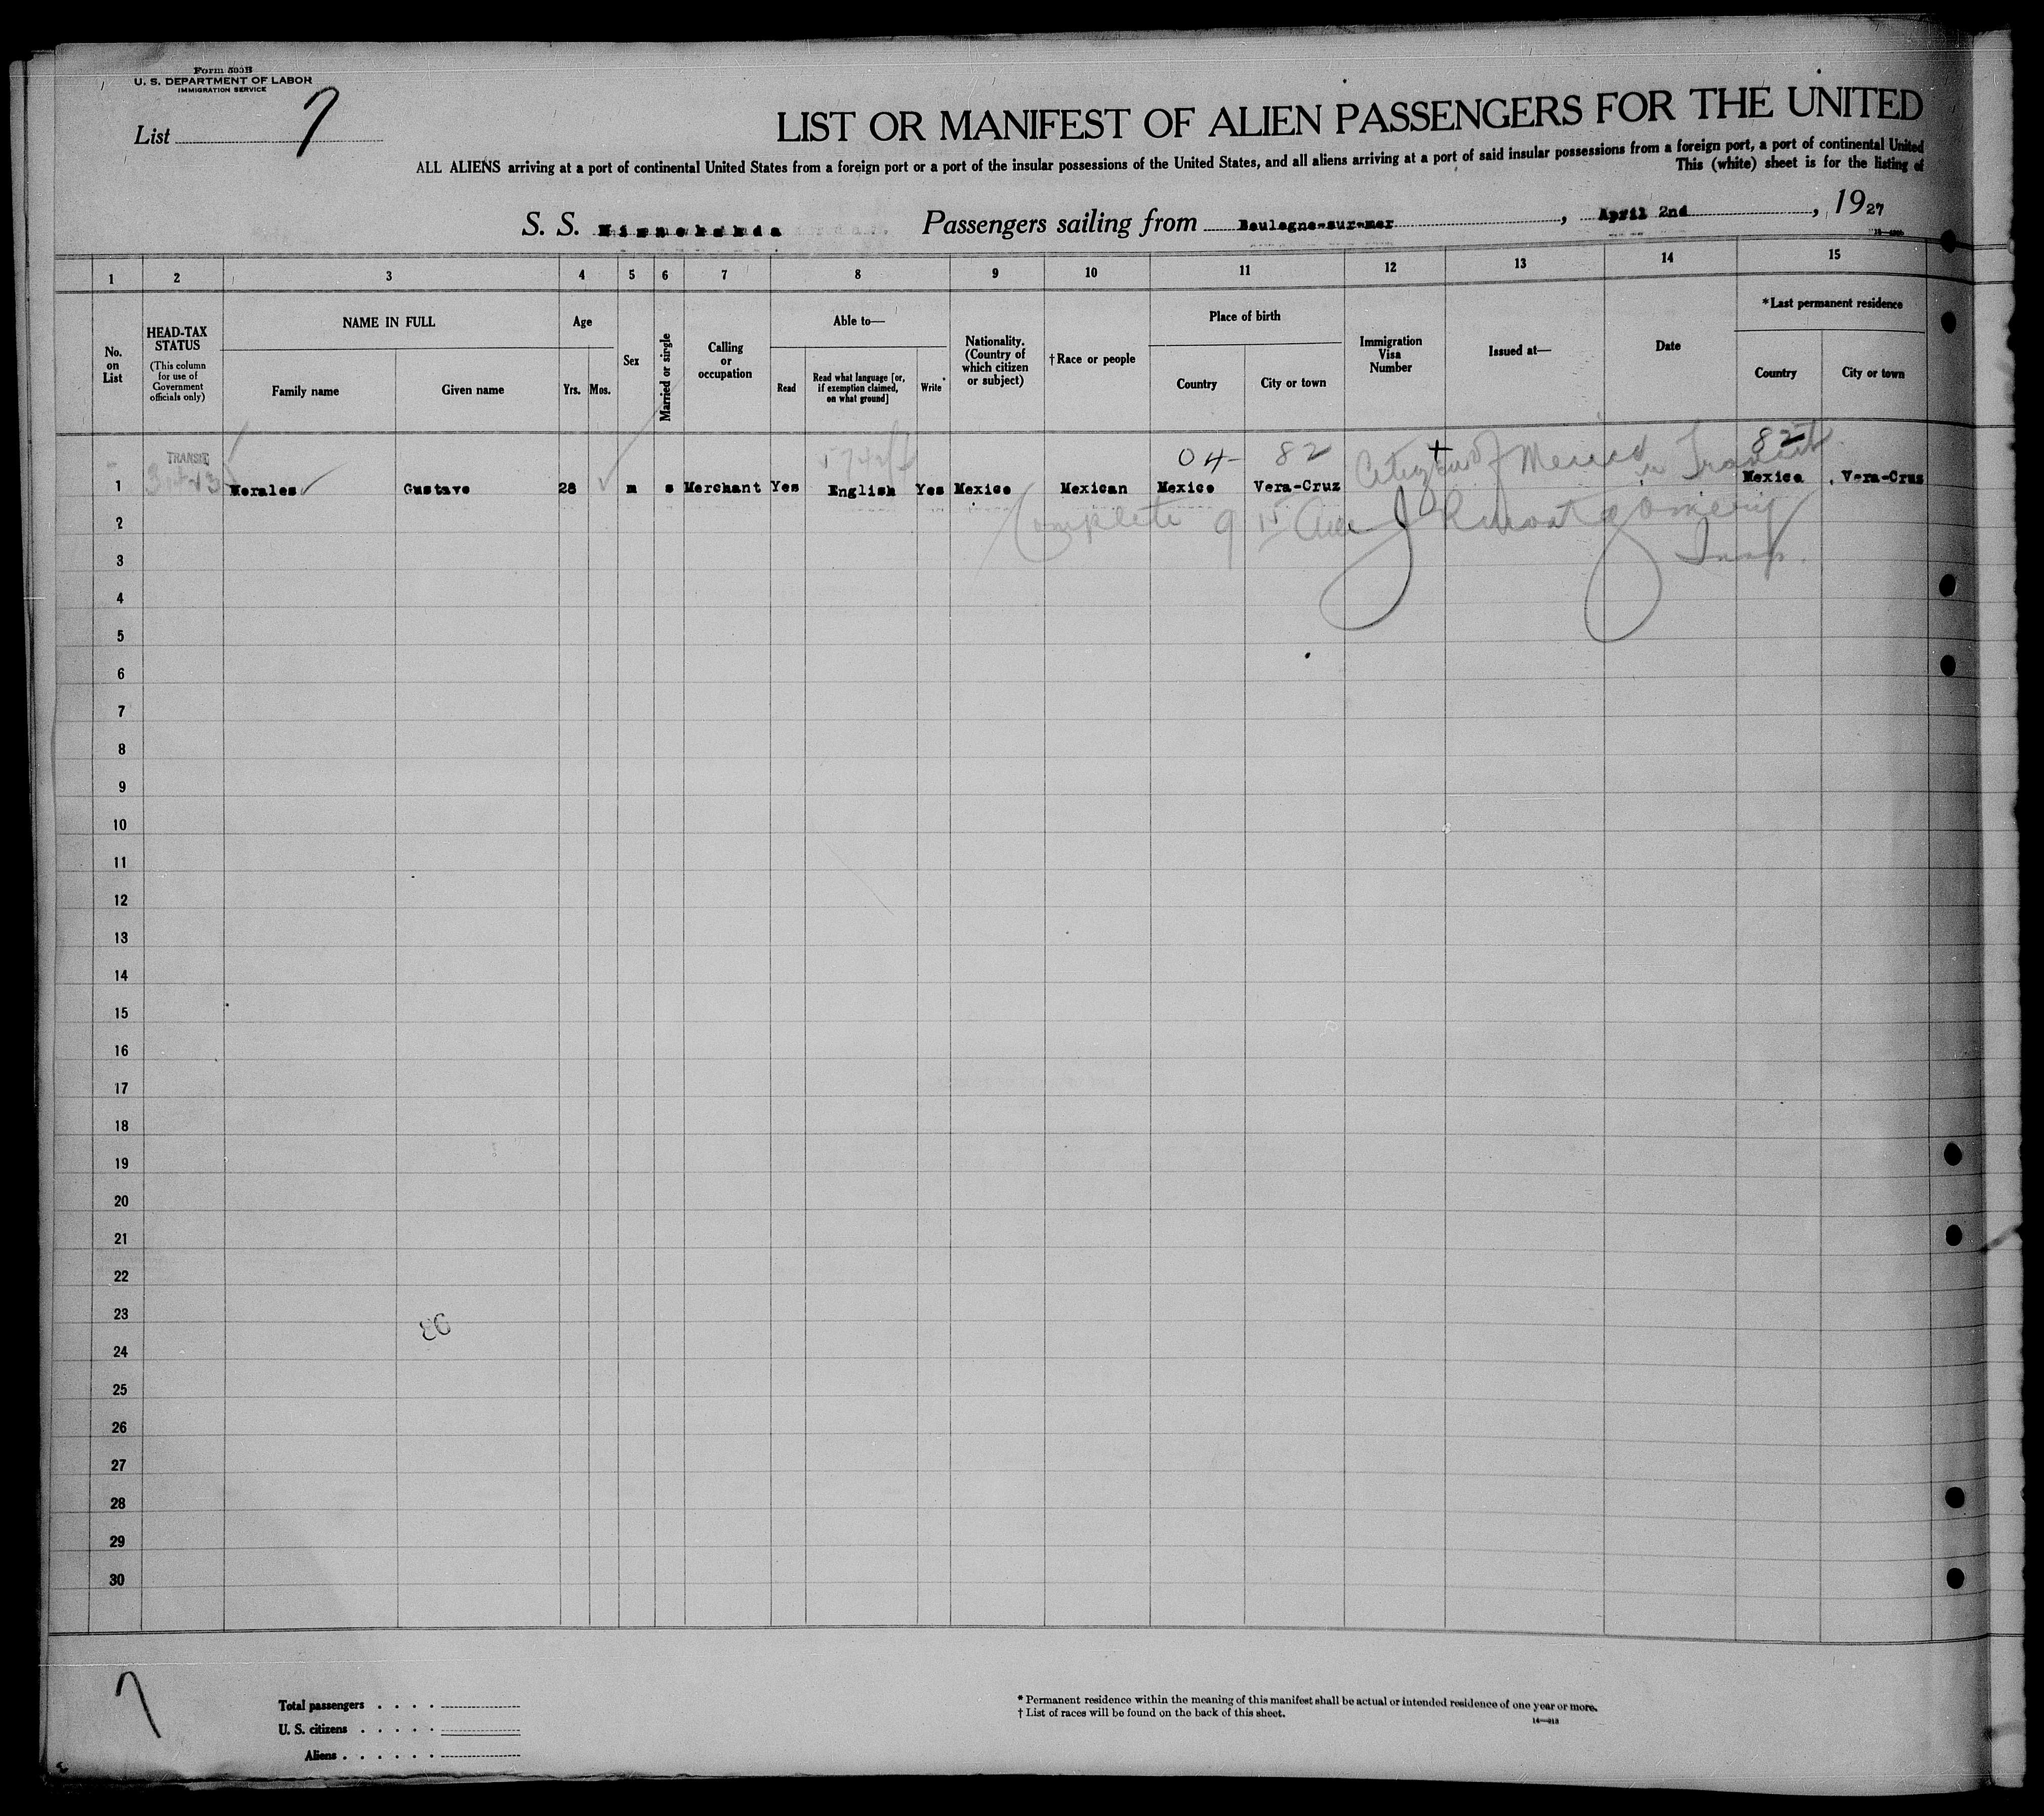 Form 505B
U. S. DEPARTMENT OF LABOR
IMMIGRATION SERVICE
List 7
LIST OR MANIFEST OF ALIEN PASSENGERS FOR THE UNITED
ALL ALIENS arriving at a port of continental United States from a foreign port or a port of the insular possessions of the United States, and all aliens arriving at a port of said insular possessions from a foreign port, a port of continental United
This (white) sheet is for the listing of
S. S. Minnekahda Passengers sailing from Boulogne-sur-mer, April 2nd, 1927
1 2 3 4 5 6 7 8 9 10 11 12 13 14 15
No. on List
HEAD-TAX STATUS
(This column for use of Government officials only)
NAME IN FULL
Family name
Given name
Age
Yrs. Mos.
Sex
Married or single
Calling or occupation
Able to—
Read
Read what language [or, if exemption claimed, on what ground]
Write
Nationality. (Country of which citizen or subject)
†Race or people
Place of birth
Country
City or town
Immigration Visa Number
Issued at—
Date
*Last permanent residence
Country
City or town
TRANSIT
04 82 82
Citizen of Mexico in Transit
1 Morales Gustavo 28 m s Merchant Yes English Yes Mexico Mexican Mexico Vera-Cruz Mexico Vera-Cruz
Complete
2
Insp.
3
4
5
6
7
8
9
10
11
12
13
14
15
16
17
18
19
20
21
22
23
24
25
26
27
28
29
30
7
Total passengers
U. S. citizens
Aliens
* Permanent residence within the meaning of this manifest shall be actual or intended residence of one year or more.
† List of races will be found on the back of this sheet.